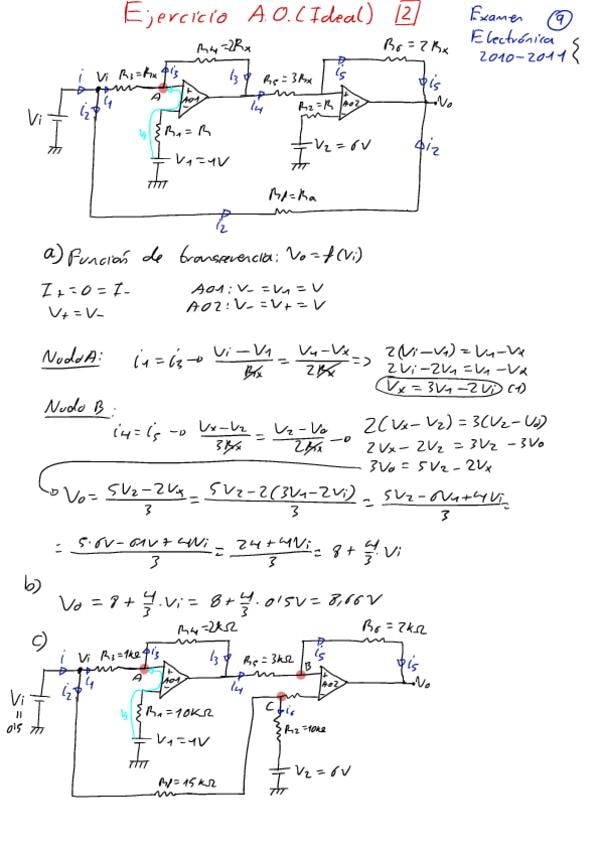 Ejercicio A.O. (Ideal) 2
Examen 9
Electrónica
2010-2011
R4=2Rx
R6=2Rx
i Vi R3=Rx i3 i3 R5=3Rx i5 i5
i1 A i4 Vo
i2 AO1 R2=R AO2
Vi R1=R i2
V1=1V V2=6V
Rf=Ra
i2
a) Función de transferencia: Vo=f(Vi)
I+=0=I- AO1: V-=V1=V
V+=V- AO2: V-=V+=V
Nudo A: i1=i3→ Vi-V1/Rx = V1-Vx/2Rx => 2(Vi-V1)=V1-Vx
2Vi-2V1=V1-Vx
Vx=3V1-2Vi (1)
Nudo B:
i4=i5→ Vx-V2/3Rx = V2-Vo/2Rx → 2(Vx-V2)=3(V2-Vo)
2Vx-2V2=3V2-3Vo
3Vo=5V2-2Vx
Vo= 5V2-2Vx/3 = 5V2-2(3V1-2Vi)/3 = 5V2-6V1+4Vi/3 =
= 5·6V-6·1V+4Vi/3 = 24+4Vi/3 = 8+4/3·Vi
b)
Vo=8+4/3·Vi=8+4/3·0'5V=8,66V
c)
R4=2kΩ
R6=2kΩ
i Vi R3=1kΩ i3 i3 R5=3kΩ B i5 i5
i1 A i4 Vo
i2 AO1 C i6 AO2
Vi = 0'5 R1=10kΩ R2=10kΩ
V1=1V
V2=6V
Rf=15kΩ